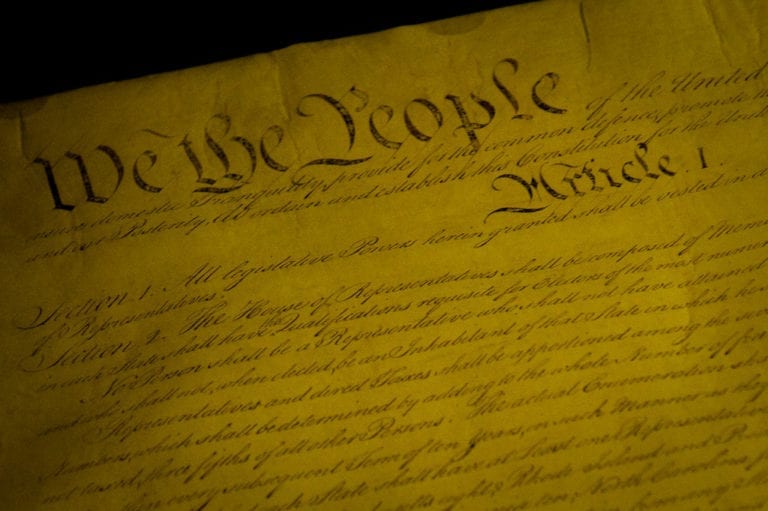 We the People of the United
domestic Tranquility, provide for the common defence, promote
and our Posterity, do ordain and establish this Constitution for the
Article. I.
Section. 1. All legislative Powers herein granted shall be vested in a
of Representatives.
Section. 2. The House of Representatives shall be composed of Mem
in each State shall have the Qualifications requisite for Electors of the most numer
No Person shall be a Representative who shall not have attained
and who shall not, when elected, be an Inhabitant of that State in which he
Representatives and direct Taxes shall be apportioned among the sev
Numbers, which shall be determined by adding to the whole Number of free
not taxed, three fifths of all other Persons. The actual Enumeration sha
every subsequent Term of ten Years, in such Manner as they
each State shall have at Least one Representative
eight, Rhode Island and Pro
ten, North Carolina
any State